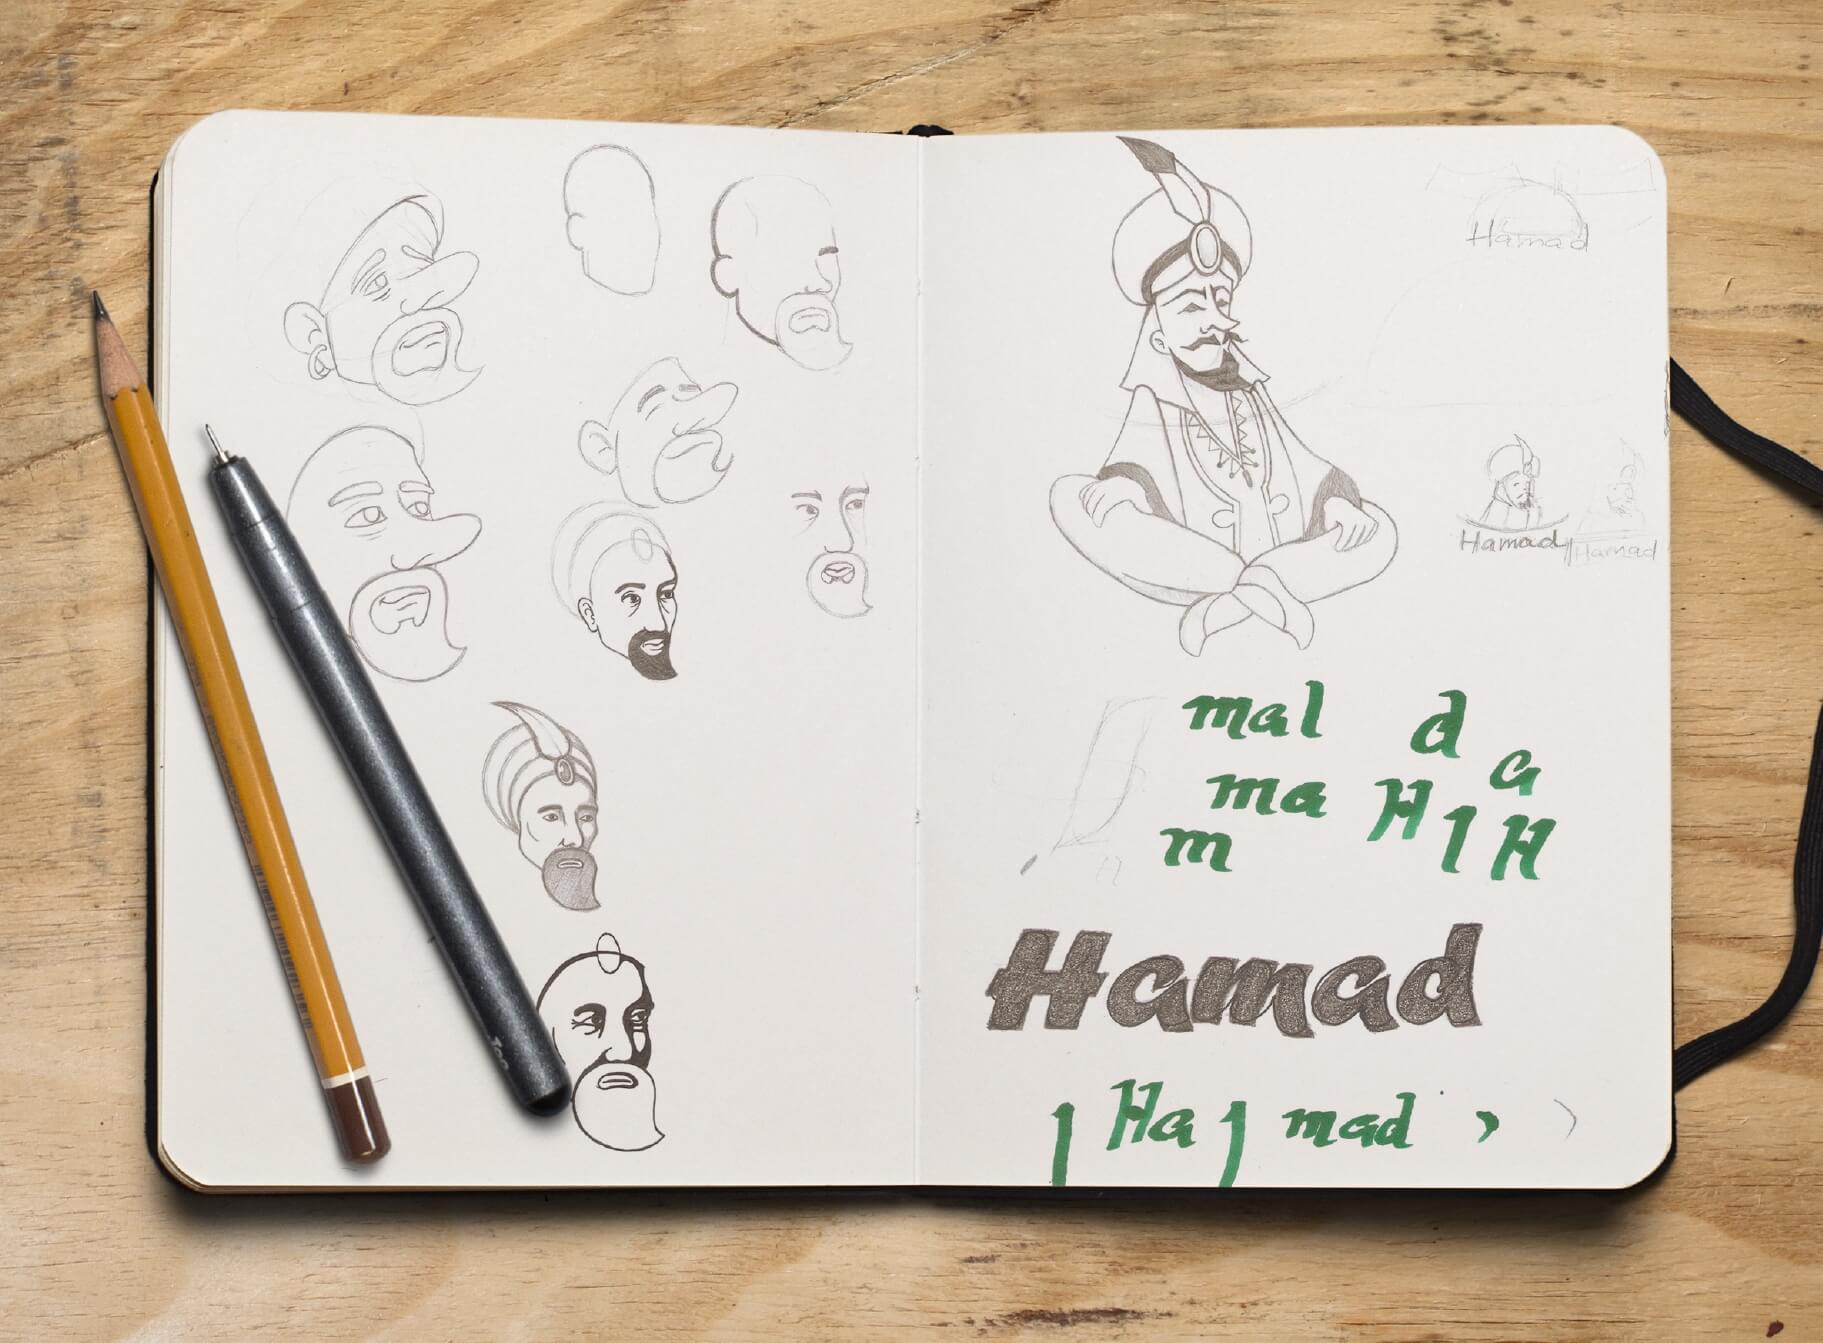 Hamad
Hamad
Hamad
mal d
a
ma H l H
m
Hamad
l Ha l mad